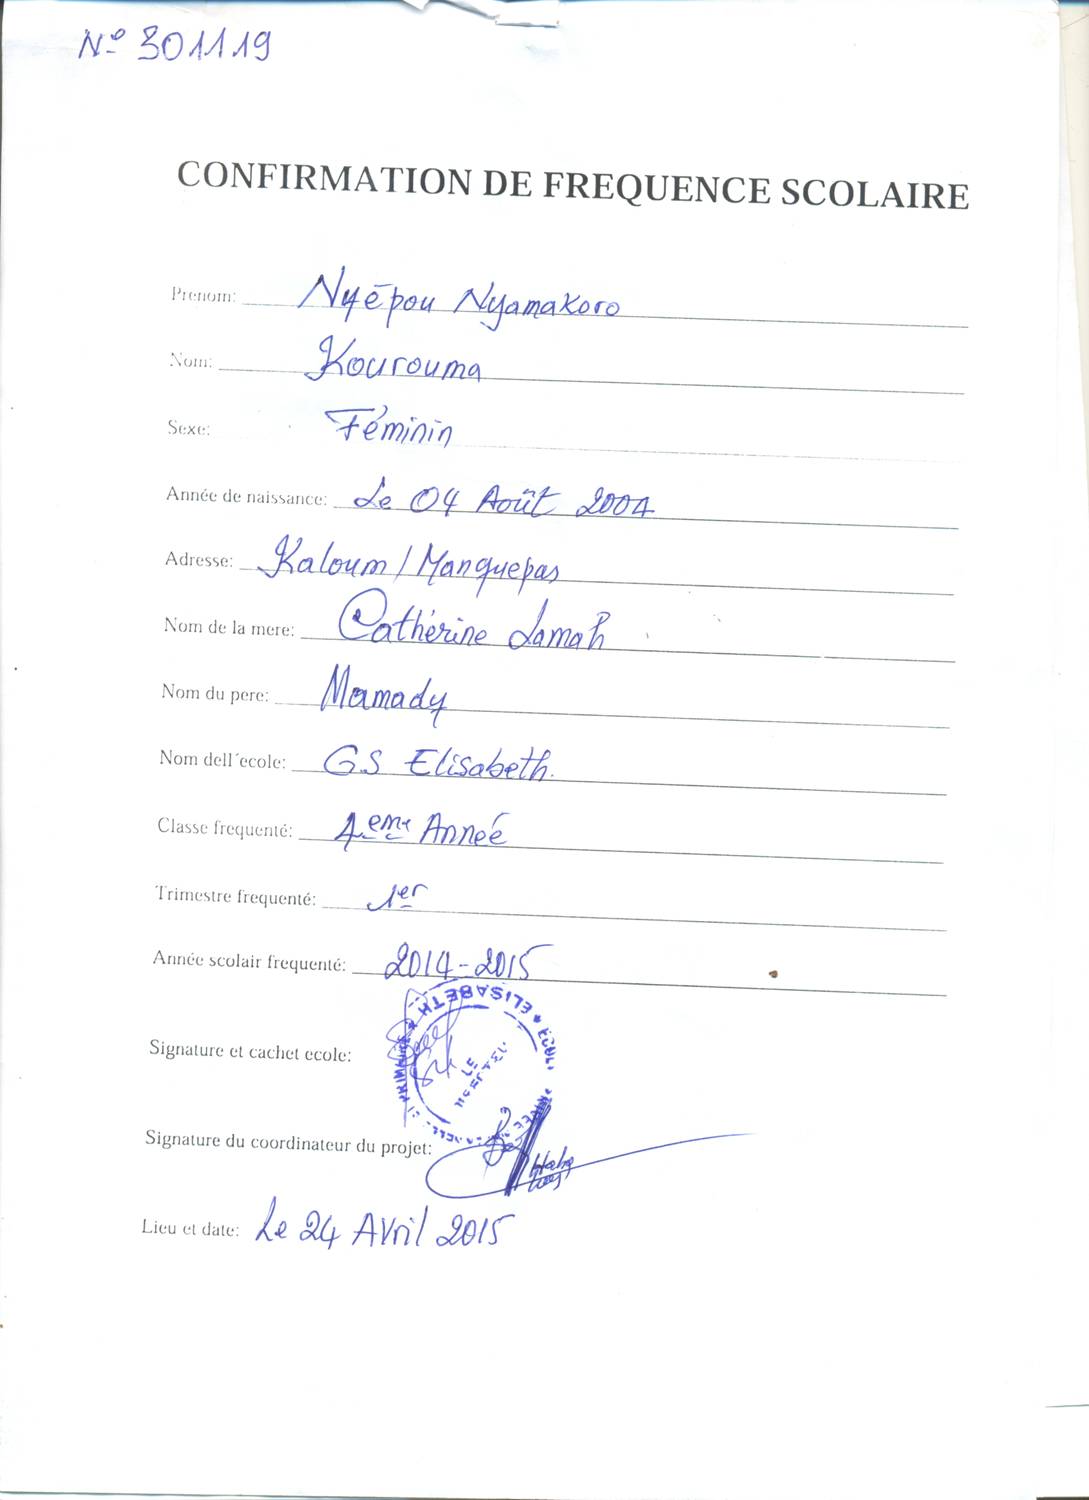 Nº 301119
CONFIRMATION DE FREQUENCE SCOLAIRE
Prenom: Nyépou Nyamakoro
Nom: Kourouma
Sexe: Féminin
Année de naissance: Le 04 Août 2004
Adresse: Kaloum / Manquepas
Nom de la mere: Cathérine Lamah
Nom du pere: Mamady
Nom dell´ecole: G.S Elisabeth.
Classe frequenté: 4eme Année
Trimestre frequenté: 1er
Année scolair frequenté: 2014-2015
ELISABETH
Signature et cachet ecole:
LE
Signature du coordinateur du projet:
Lieu et date: Le 24 Avril 2015